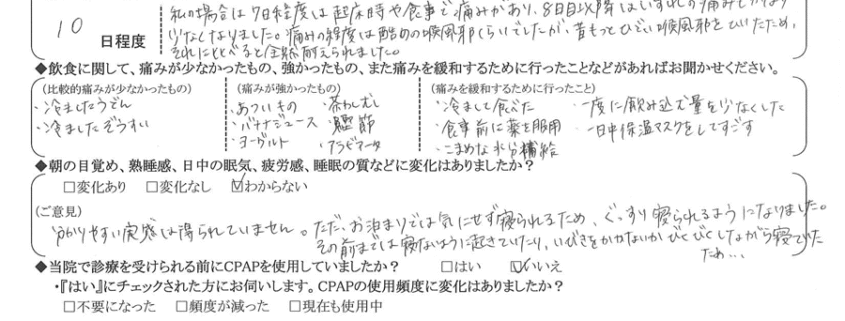 私の場合は7日程度は起床時や食事で痛みがあり、8日目以降はいずれの痛みもかなり
10 日程度 少なくなりました。痛みの程度は酷めの喉風邪くらいでしたが、昔もっとひどい喉風邪をひいたため、
それにくらべると全然耐えられました。
◆飲食に関して、痛みが少なかったもの、強かったもの、また痛みを緩和するために行ったことなどがあればお聞かせください。
(比較的痛みが少なかったもの) (痛みが強かったもの) (痛みを緩和するために行ったこと)
・冷ましたうどん ・あついもの ・茶わんむし ・冷まして食べた ・一度に飲み込む量を少なくした
・冷ましたぞうすい ・バナナジュース ・鰹節 ・食事前に薬を服用 ・一日中保湿マスクをしてすごす
・ヨーグルト ・アラビアータ ・こまめな水分補給
◆朝の目覚め、熟睡感、日中の眠気、疲労感、睡眠の質などに変化はありましたか?
□変化あり □変化なし ☑わからない
(ご意見)
分かりやすい実感は得られていません。ただ、お泊まりでは気にせず寝られるため、ぐっすり寝られるようになりました。
その前までは寝ないように起きていたり、いびきをかかないかびくびくしながら寝ていた
ため…
◆当院で診療を受けられる前にCPAPを使用していましたか? □はい ☑いいえ
・『はい』にチェックされた方にお伺いします。CPAPの使用頻度に変化はありましたか?
□不要になった □頻度が減った □現在も使用中